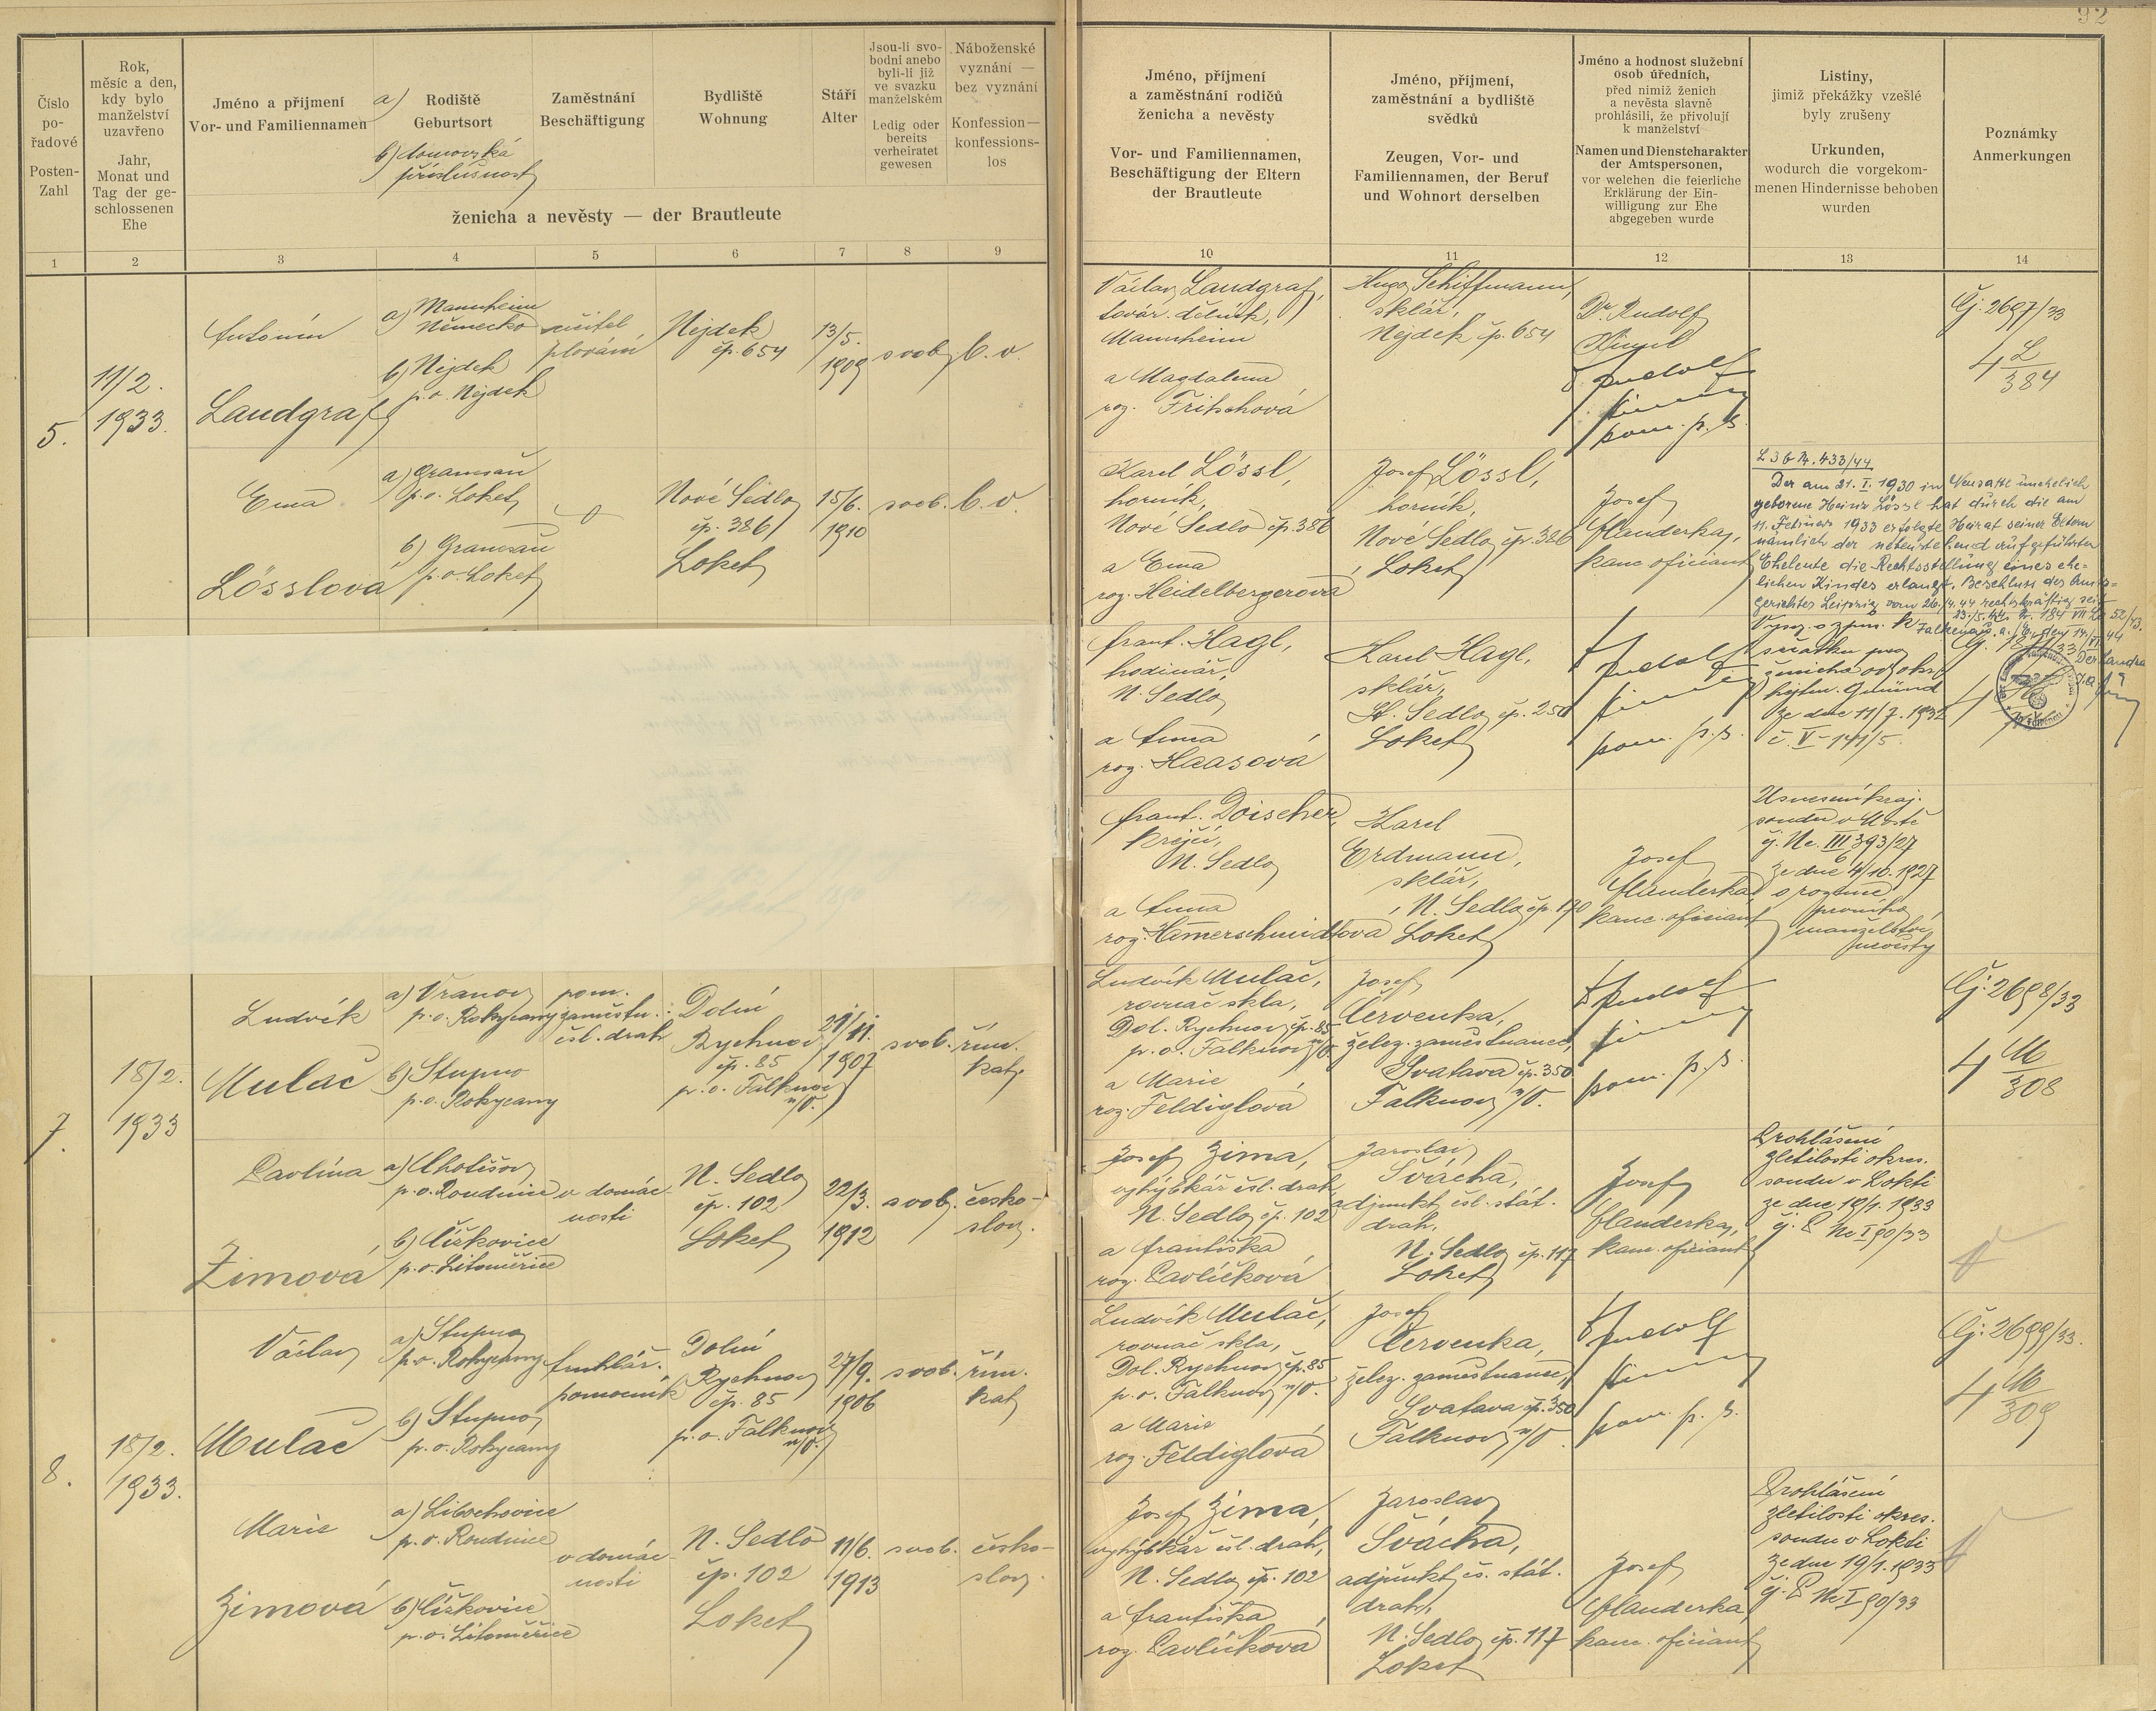 92
Číslo
po-
řadové
Posten-
Zahl
Rok,
měsíc a den,
kdy bylo
manželství
uzavřeno
Jahr,
Monat und
Tag der ge-
schlossenen
Ehe
Jméno a příjmení
Vor- und Familiennamen
a) Rodiště
Geburtsort
b) domovská
příslušnost
Zaměstnání
Beschäftigung
Bydliště
Wohnung
Stáří
Alter
Jsou-li svo-
bodni anebo
byli-li již
ve svazku
manželském
Ledig oder
bereits
verheiratet
gewesen
Náboženské
vyznání —
bez vyznání
Konfession—
konfessions-
los
ženicha a nevěsty — der Brautleute
Jméno, příjmení
a zaměstnání rodičů
ženicha a nevěsty
Vor- und Familiennamen,
Beschäftigung der Eltern
der Brautleute
Jméno, příjmení,
zaměstnání a bydliště
svědků
Zeugen, Vor- und
Familiennamen, der Beruf
und Wohnort derselben
Jméno a hodnost služební
osob úředních,
před nimiž ženich
a nevěsta slavně
prohlásili, že přivolují
k manželství
Namen und Dienstcharakter
der Amtspersonen,
vor welchen die feierliche
Erklärung der Ein-
willigung zur Ehe
abgegeben wurde
Listiny,
jimiž překážky vzešlé
byly zrušeny
Urkunden,
wodurch die vorgekom-
menen Hindernisse behoben
wurden
Poznámky
Anmerkungen
1 2 3 4 5 6 7 8 9 10 11 12 13 14
5.
11/2.
1933.
Antonín
Landgraf
a) Mannheim
Německo
b) Nejdek
p.o. Nejdek
učitel
plování
Nejdek
čp. 654
13/5.
1909
svob.
b. v.
Václav Landgraf,
továr. dělník,
Mannheim
a Magdalena
roz. Fritschová
Hugo Schiffmann,
sklář,
Nejdek čp. 654
Dr. Rudolf
pom. p. s.
Čj. 2697/33
4 L/384
Ema
Lösslová
a) Granesau
p.o. Loket
b) Granesau
p.o. Loket
Nové Sedlo
čp. 386
Loket
15/6.
1910
svob.
b. v.
Karel Lössl,
horník,
Nové Sedlo čp. 386
a Ema
roz. Heidelbergerová
Josef Lössl,
horník,
Nové Sedlo čp. 386
Loket
Josef
Flanderka,
kanc. oficiant
L 3 b Nr. 433/44
Der am 21. I. 1930 in Neusattl unehelich
geborene Heinz Lössl hat durch die am
11. Februar 1933 erfolgte Heirat seiner Eltern
nämlich der nebenstehend aufgeführten
Eheleute die Rechtsstellung eines ehe-
lichen Kindes erlangt. Beschluss des Amts-
gerichtes Leipzig vom 26./4.44 rechtskräftig seit
Falkenau a. d. Eger, den 14./VI. 44
Der Landrat
Frant. Hagl,
hodinář,
N. Sedlo
a Anna
roz. Haasová
Karel Hagl,
sklář,
St. Sedlo čp. 250
Loket
pom. p. s.
sňatku pro
ženicha od okr.
hejtm. Gmünd
ze dne 11/7. 1932
č. V-141/5.
Frant. Doischer,
krejčí,
N. Sedlo
a Anna
roz. Hamerschmidtová
Karel
Erdmann,
sklář,
N. Sedlo čp. 170
Loket
Josef
Flanderka,
kanc. oficiant
Usnesení kraj.
soudu v Mostě
čj. Nc. III 393/27
6
ze dne 4/10. 1927
o rozluce
prvního
manželství
nevěsty
7.
18/2.
1933
Ludvík
Mulač
a) Vranov
p.o. Rokycany
b) Stupno
p.o. Rokycany
pom.
zaměstn.
čsl. drah
Dolní
Rychnov
čp. 85
p.o. Falknov
n/O.
21/11.
1907
svob.
řím.
kat.
Ludvík Mulač,
rovnač skla,
Dol. Rychnov čp. 85
p.o. Falknov n/O.
a Marie
roz. Feldiglová
Josef
Červenka,
želez. zaměstnanec,
Svatava čp. 350
Falknov n/O.
pom. p. s.
Čj. 2698/33
4 M/308
Pavlína
Zimová
a) Chotěšov
p.o. Roudnice
b) Čížkovice
p.o. Litoměřice
v domác-
nosti
N. Sedlo
čp. 102
Loket
22/3.
1912
svob.
česko-
slov.
Josef Zima,
výhybkář čsl. drah,
N. Sedlo čp. 102
a Františka
roz. Pavlíčková
Jaroslav
Švácha,
adjunkt čsl. stát.
drah,
N. Sedlo čp. 117
Loket
Josef
Flanderka,
kanc. oficiant
Prohlášení
zletilosti okres.
soudu v Lokti
ze dne 19/1. 1933
čj. P Nc I 90/33
8.
18/2.
1933.
Václav
Mulač
a) Stupno
p.o. Rokycany
b) Stupno
p.o. Rokycany
truhlář.
pomocník
Dolní
Rychnov
čp. 85
p.o. Falknov
n/O.
27/9.
1906
svob.
řím.
kat.
Ludvík Mulač,
rovnač skla,
Dol. Rychnov čp. 85
p.o. Falknov n/O.
a Marie
roz. Feldiglová
Josef
Červenka,
želez. zaměstnanec,
Svatava čp. 350
Falknov n/O.
pom. p. s.
Čj. 2699/33.
4 M/309
Marie
Zimová
a) Libochovice
p.o. Roudnice
b) Čížkovice
p.o. Litoměřice
v domác-
nosti
N. Sedlo
čp. 102
Loket
11/6.
1913
svob.
česko-
slov.
Josef Zima,
výhybkář čsl. drah,
N. Sedlo čp. 102
a Františka
roz. Pavlíčková
Jaroslav
Švácha,
adjunkt čs. stát.
drah,
N. Sedlo čp. 117
Loket
Josef
Flanderka,
kanc. oficiant
Prohlášení
zletilosti okres.
soudu v Lokti
ze dne 19/1. 1933
čj. P Nc I 90/33